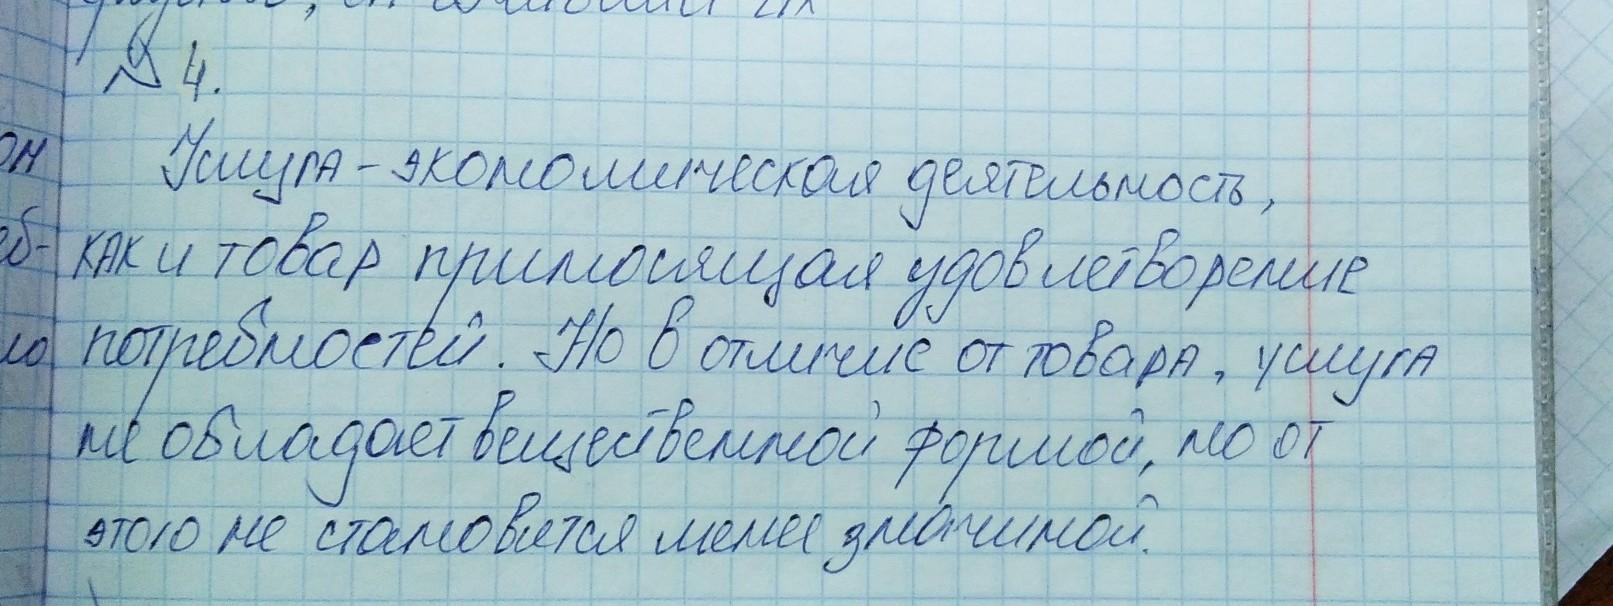 № 4.
Услуга - экономическая деятельность,
как и товар приносящая удовлетворение
потребностей. Но в отличие от товара, услуга
не обладает вещественной формой, но от
этого не становится менее значимой.